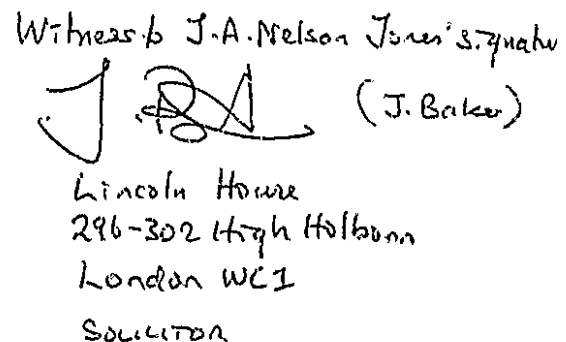 Witness to J.A. Nelson Jones' signature
(J. Baker)
Lincoln House
296-302 High Holborn
London WC1
SOLICITOR